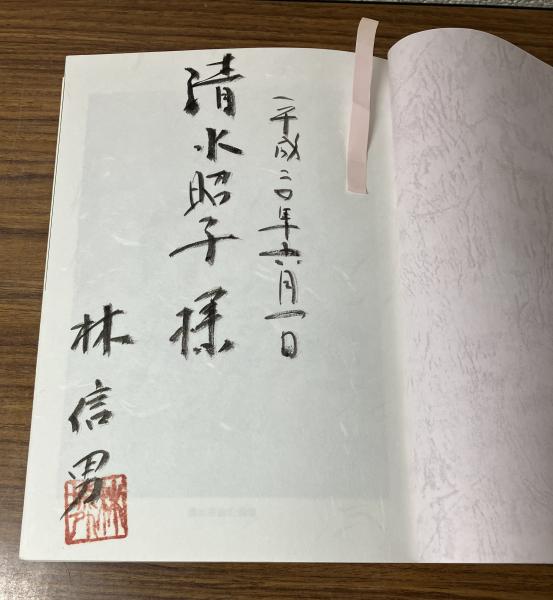 平成二〇年六月一日
清水昭子様
林信男